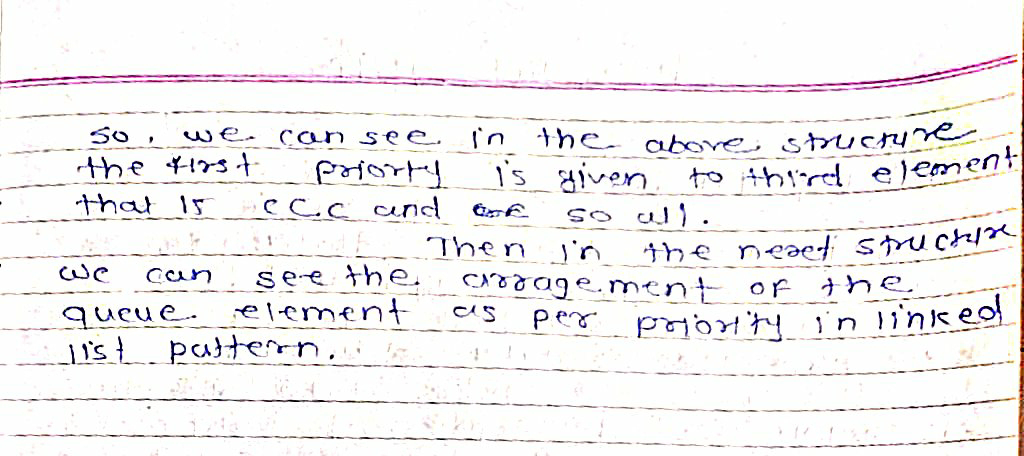 so, we can see in the above structure
the first priorty is given to third element
that is CCC and so all.
Then in the next structure
we can see the arragement of the
queue element as per priority in linked
list pattern.